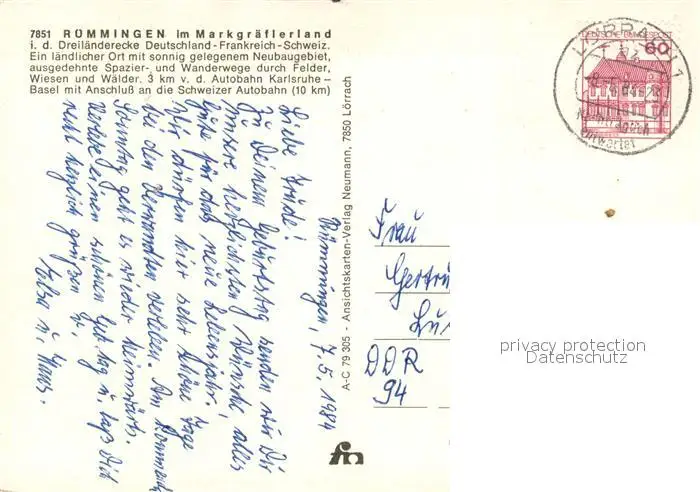 7851 RÜMMINGEN im Markgräflerland
i. d. Dreiländerecke Deutschland-Frankreich-Schweiz.
Ein ländlicher Ort mit sonnig gelegenem Neubaugebiet,
ausgedehnte Spazier- und Wanderwege durch Felder,
Wiesen und Wälder. 3 km v. d. Autobahn Karlsruhe –
Basel mit Anschluß an die Schweizer Autobahn (10 km)
Rümmingen, 7.5.1984
Liebe Trude!
Zu Deinem Geburtstag senden wir Dir
unsere herzlichsten Wünsche, alles
Gute für das neue Lebensjahr.
Wir durften hier sehr schöne Tage
bei den Verwandten verleben. Am kommenden
Sonntag geht es wieder heimwärts.
Verlebe einen schönen Geb.tag u. laß Dich
recht herzlich grüßen v.
Elsa u. Hans.
A-C 79 305 - Ansichtskarten-Verlag Neumann, 7850 Lörrach
fn
DEUTSCHE BUNDESPOST
60
LÖRRACH 1
erwartet
Frau
Gertru
DDR
94
privacy protection
Datenschutz